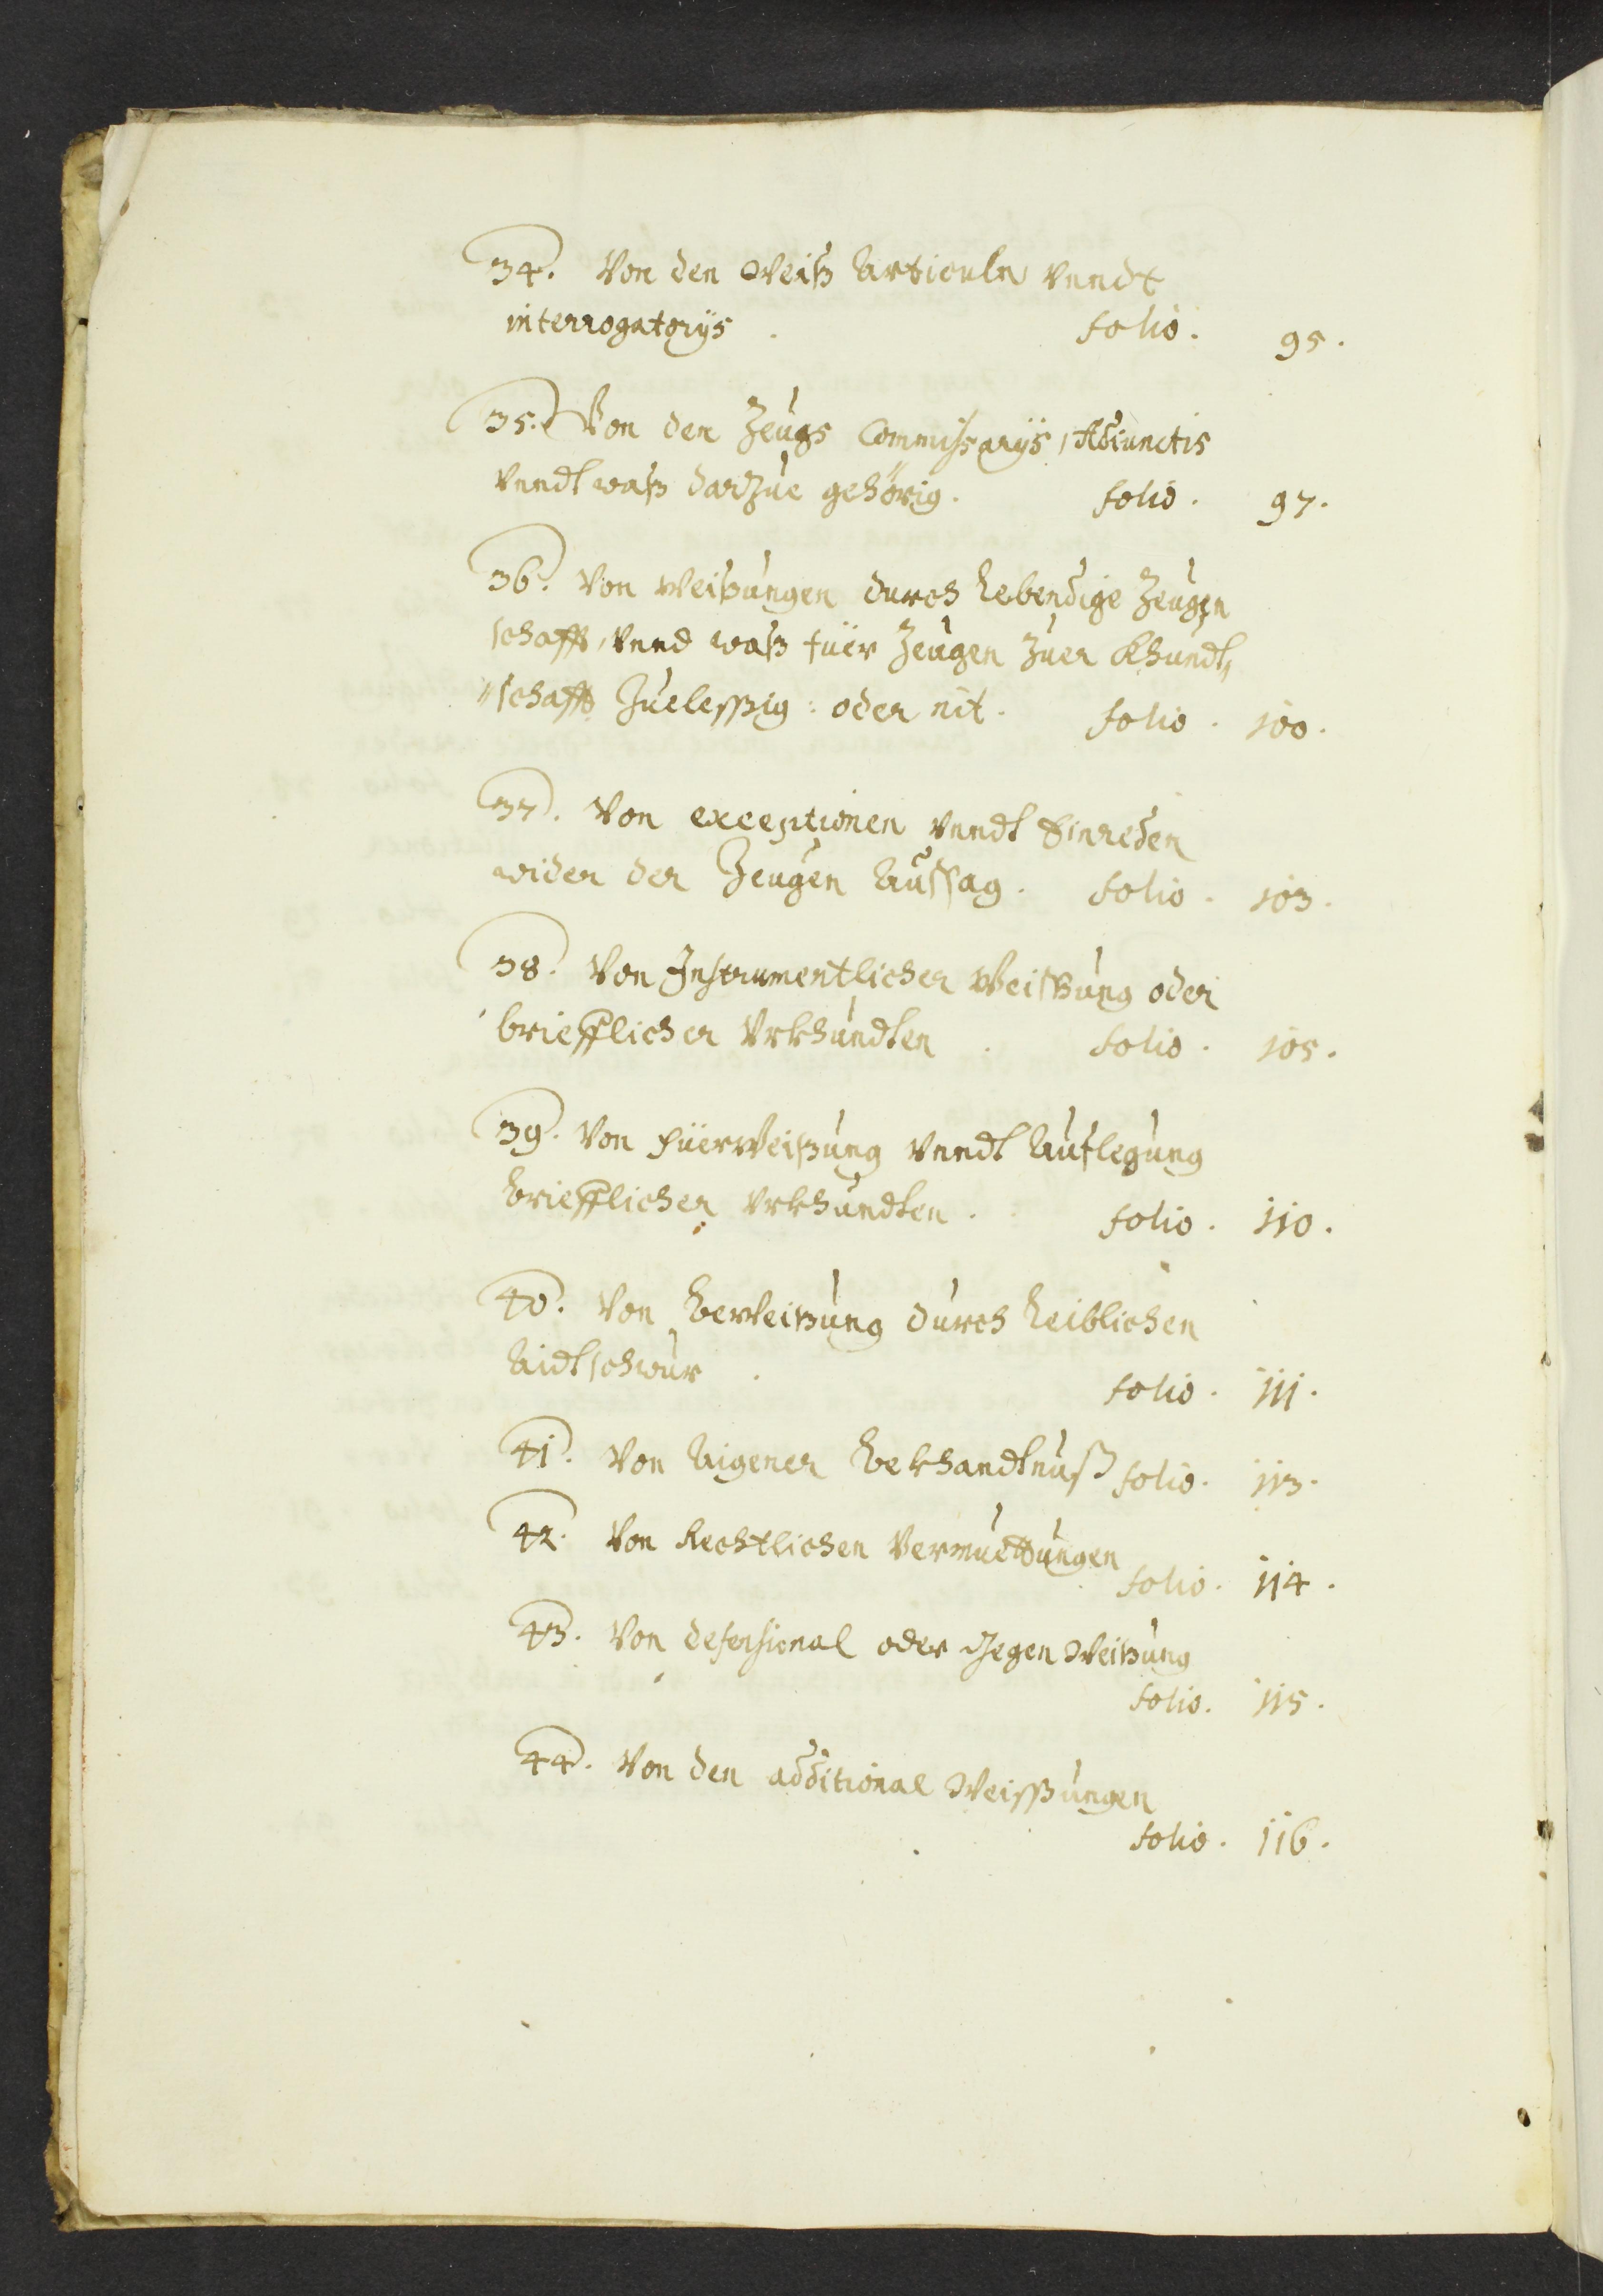 34. Von den Weiß Articuln vnndt
interrogatorÿs. folio. 95.
35. Von den Zeugs Commissarÿs, Adiunctis
vnndt waß darzue gehörig. folio. 97.
36. Von weißungen durch lebendige Zeugen
schafft, vnnd waß füer Zeugen zuer Khundt„
„schafft Zuelessig: oder nit. folio. 100.
37. Von exceptionen vnndt Einreden
wider der Zeugen Aussag. folio. 103.
38. Von Instrumentlicher Weissung oder
brieflicher Vrkhundten. folio. 105.
39. Von füerweißung vnndt Auflegung
brieflicher Vrkhundten. folio. 110.
40. Von beweißung durch leiblichen
Aidtschwur. folio. 111.
41. Von Aigener bekhandtnuß folio. 113.
42. Von Rechtlichen Vermuettungen
folio. 114.
43. Von defensional oder Gegen Weißung
folio. 115.
44. Von den additional Weissungen
folio. 116.